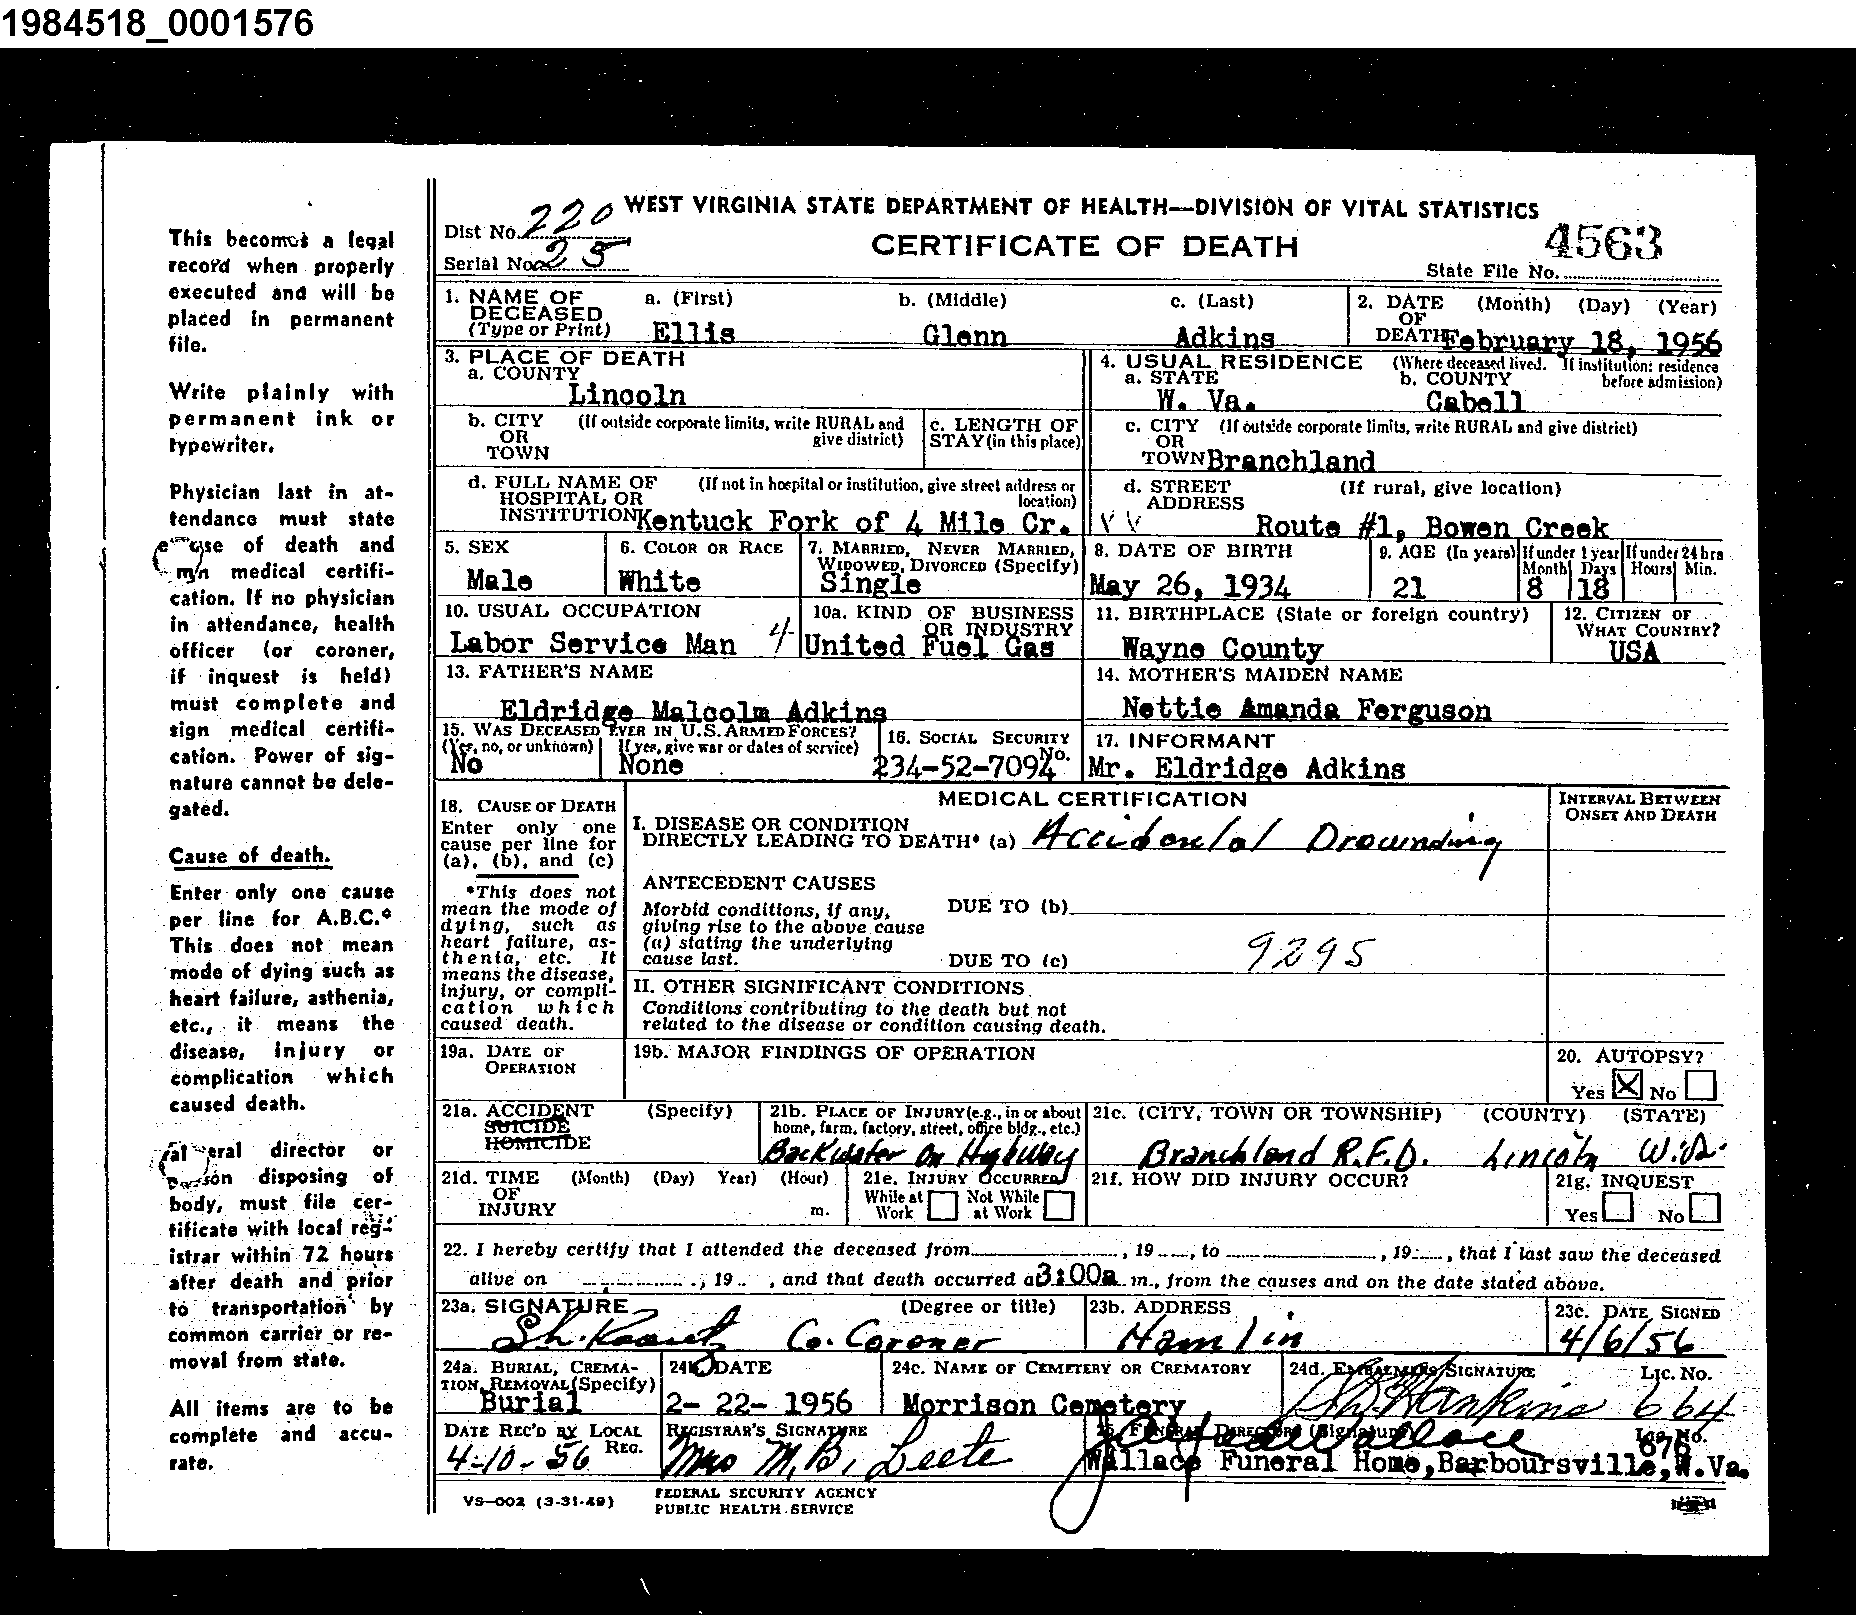 1984518_0001576
This becomes a legal
record when properly
executed and will be
placed in permanent
file.
Write plainly with
permanent ink or
typewriter.
Physician last in at-
tendance must state
cause of death and
sign medical certifi-
cation. If no physician
in attendance, health
officer (or coroner,
if inquest is held)
must complete and
sign medical certifi-
cation. Power of sig-
nature cannot be dele-
gated.
Cause of death.
Enter only one cause
per line for A.B.C.*
This does not mean
mode of dying such as
heart failure, asthenia,
etc., it means the
disease, injury or
complication which
caused death.
director or
disposing of
body, must file cer-
tificate with local reg-
istrar within 72 hours
after death and prior
to transportation by
common carrier or re-
moval from state.
All items are to be
complete and accu-
rate.
WEST VIRGINIA STATE DEPARTMENT OF HEALTH—DIVISION OF VITAL STATISTICS
Dist No. 220
CERTIFICATE OF DEATH
4563
Serial No. 25
State File No.
1. NAME OF DECEASED (Type or Print) a. (First) b. (Middle) c. (Last)
Ellis Glenn Adkins
2. DATE OF DEATH (Month) (Day) (Year)
February 18, 1956
3. PLACE OF DEATH
a. COUNTY
Lincoln
4. USUAL RESIDENCE (Where deceased lived. If institution: residence before admission)
a. STATE b. COUNTY
W. Va. Cabell
b. CITY OR TOWN (If outside corporate limits, write RURAL and give district)
c. LENGTH OF STAY (in this place)
c. CITY OR TOWN (If outside corporate limits, write RURAL and give district)
Branchland
d. FULL NAME OF HOSPITAL OR INSTITUTION (If not in hospital or institution, give street address or location)
Kentuck Fork of 4 Mile Cr.
d. STREET ADDRESS (If rural, give location)
Route #1, Bowen Creek
5. SEX
Male
6. COLOR OR RACE
White
7. MARRIED, NEVER MARRIED, WIDOWED, DIVORCED (Specify)
Single
8. DATE OF BIRTH
May 26, 1934
9. AGE (In years)
21
If under 1 year Month Days
8 18
If under 24 hrs Hours Min.
10. USUAL OCCUPATION
Labor Service Man 4
10a. KIND OF BUSINESS OR INDUSTRY
United Fuel Gas
11. BIRTHPLACE (State or foreign country)
Wayne County
12. CITIZEN OF WHAT COUNTRY?
USA
13. FATHER'S NAME
Eldridge Malcolm Adkins
14. MOTHER'S MAIDEN NAME
Nettie Amanda Ferguson
15. WAS DECEASED EVER IN U.S. ARMED FORCES?
(Yes, no, or unknown) If yes, give war or dates of service)
No None
16. SOCIAL SECURITY No.
234-52-7094
17. INFORMANT
Mr. Eldridge Adkins
18. CAUSE OF DEATH
Enter only one
cause per line for
(a), (b), and (c)
*This does not
mean the mode of
dying, such as
heart failure, as-
thenia, etc. It
means the disease,
injury, or compli-
cation which
caused death.
MEDICAL CERTIFICATION
INTERVAL BETWEEN
ONSET AND DEATH
I. DISEASE OR CONDITION
DIRECTLY LEADING TO DEATH* (a) Accidental Drownding
ANTECEDENT CAUSES
Morbid conditions, if any,
giving rise to the above cause
(a) stating the underlying
cause last.
DUE TO (b)
DUE TO (c)
9295
II. OTHER SIGNIFICANT CONDITIONS
Conditions contributing to the death but not
related to the disease or condition causing death.
19a. DATE OF OPERATION
19b. MAJOR FINDINGS OF OPERATION
20. AUTOPSY?
Yes X No
21a. ACCIDENT (Specify)
SUICIDE
HOMICIDE
21b. PLACE OF INJURY (e.g., in or about home, farm, factory, street, office bldg., etc.)
Backwater On Highway
21c. (CITY, TOWN OR TOWNSHIP) (COUNTY) (STATE)
Branchland R.F.D. Lincoln W.Va.
21d. TIME OF INJURY (Month) (Day) Year) (Hour) m.
21e. INJURY OCCURRED
While at Work Not While at Work
21f. HOW DID INJURY OCCUR?
21g. INQUEST
Yes No
22. I hereby certify that I attended the deceased from , 19 , to , 19 , that I last saw the deceased
alive on , 19 , and that death occurred at 3:00a m., from the causes and on the date stated above.
23a. SIGNATURE (Degree or title)
Co. Coroner
23b. ADDRESS
Hamlin
23c. DATE SIGNED
4/6/56
24a. BURIAL, CREMA-
TION, REMOVAL (Specify)
Burial
24b. DATE
2- 22- 1956
24c. NAME OF CEMETERY OR CREMATORY
Morrison Cemetery
24d. EMBALMER'S SIGNATURE Lic. No.
Hankins 664
DATE REC'D BY LOCAL REG.
4-10-56
REGISTRAR'S SIGNATURE
Mrs M. B. Leete
25. FUNERAL DIRECTOR (Signature) Lic. No.
Wallace 676
Wallace Funeral Home, Barboursville, W.Va.
VS-002 (3-31-49)
FEDERAL SECURITY AGENCY
PUBLIC HEALTH SERVICE